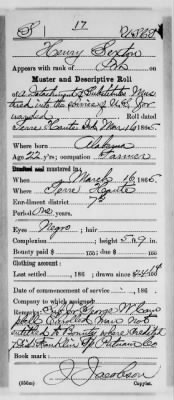 S | 17 | U.S.C.I.
Henry Sexton
Appears with rank of Pvt on
Muster and Descriptive Roll
of a Detachment of Substitutes Mus
tered into the Service of U.S. for
warded Roll dated
Terre Haute Ind. Mar 16, 1865.
Where born Alabama
Age 22 y'rs; occupation Farmer
When March 16, 1865
Where Terre Haute
Enrollment district 7th
Period years.
Eyes Negro; hair
Complexion ; height 5 ft. 9 in.
Bounty paid $ 100; due $ 100
Clothing account:
Last settled , 186 ; drawn since $
Date of commencement of service , 186
Company to which assigned
Remarks: Sub for George M
Enrolled man Not
entitled to Bounty where
Franklin Tp Putnam Co
Book mark:
J. Jacobson
(356m) Copyist.